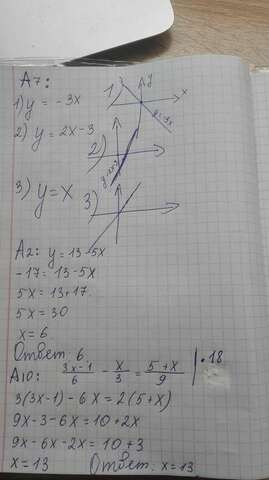 А7:
1) y = -3x
1) y x y=-3x
2) y = 2x-3
2) y=2x-3
3) y = x
3)
А2: y = 13-5x
-17 = 13-5x
5x = 13+17
5x = 30
x = 6
Ответ 6
А10: 3x-1/6 - x/3 = 5+x/9 | · 18
3(3x-1) - 6x = 2(5+x)
9x-3-6x = 10+2x
9x-6x-2x = 10+3
x = 13 Ответ: x=13